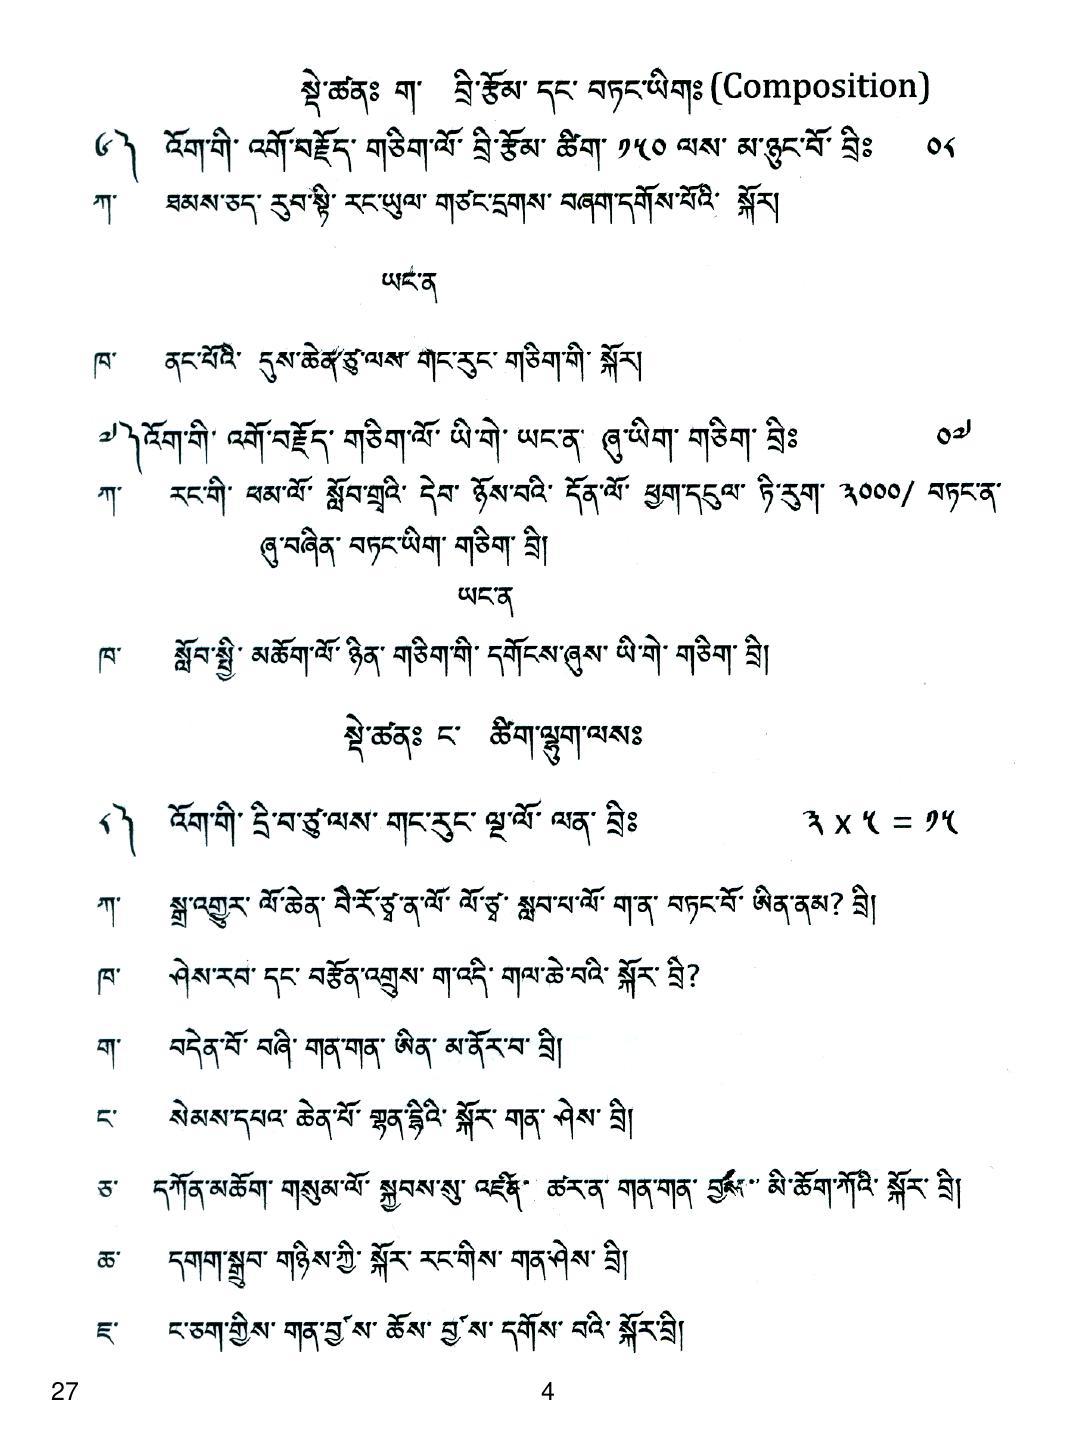 སྡེ་ཚནཿ ག་ བྲི་རྩོམ་ དང་ བཏང་ཡིགཿ (Composition)
༦༽ འོག་གི་ འགོ་བརྗོད་ གཅིག་ལོ་ བྲི་རྩོམ་ ཚིག་ ༡༥༠ ལས་ མ་ཉུང་བོ་ བྲིཿ ༠༨
ཀ་ ཐམས་ཅད་ རུབ་སྟི་ རང་ཡུལ་ གཙང་དྲགས་ བཞག་དགོས་པོའི་ སྐོར།
ཡང་ན
ཁ་ ནང་པོའི་ དུས་ཆེན་ཙུ་ལས་ གང་རུང་ གཅིག་གི་ སྐོར།
༧༽འོག་གི་ འགོ་བརྗོད་ གཅིག་ལོ་ ཡི་གེ་ ཡང་ན་ ཞུ་ཡིག་ གཅིག་ བྲིཿ ༠༧
ཀ་ རང་གི་ ཕམ་ལོ་ སློབ་གྲྭའི་ དེབ་ ཉོས་བའི་ དོན་ལོ་ ཕྱག་དངུལ་ ཏི་རུག་ ༣༠༠༠/ བཏང་ན་
ཞུ་བཞིན་ བཏང་ཡིག་ གཅིག་ བྲི།
ཡང་ན
ཁ་ སློབ་སྤྱི་ མཆོག་ལོ་ ཉིན་ གཅིག་གི་ དགོངས་ཞུས་ ཡི་གེ་ གཅིག་ བྲི།
སྡེ་ཚནཿ ང་ ཚིག་ལྷུག་ལསཿ
༨༽ འོག་གི་ དྲི་བ་ཙུ་ལས་ གང་རུང་ ལྔ་ལོ་ ལན་ བྲིཿ ༣ x ༥ = ༡༥
ཀ་ སྒྲ་འགྱུར་ ལོ་ཆེན་ བཻ་རོ་ཙྭ་ན་ལོ་ ལོ་ཙྭ་ སླབ་པ་ལོ་ ག་ན་ བཏང་བོ་ ཨིན་ནམ? བྲི།
ཁ་ ཤེས་རབ་ དང་ བརྩོན་འགྲུས་ ག་འདི་ གལ་ཆེ་བའི་ སྐོར་ བྲི?
ག་ བདེན་བོ་ བཞི་ གན་གན་ ཨིན་ མ་ནོར་བ་ བྲི།
ང་ སེམས་དཔའ་ ཆེན་པོ་ སྐོར་ གན་ ཤེས་ བྲི།
ཅ་ དཀོན་མཆོག་ གསུམ་ལོ་ སྐྱབས་སུ་ ཚར་ན་ གན་གན་ མི་ཆོག་ཀོའི་ སྐོར་ བྲི།
ཆ་ དགག་སྒྲུབ་ གཉིས་ཀྱི་ སྐོར་ རང་གིས་ གན་ཤེས་ བྲི།
ཇ་ ང་ཅག་གྱིས་ གན་བྱ་ས་ ཆོས་ བྱ་ས་ དགོས་ བའི་ སྐོར་བྲི།
27 4